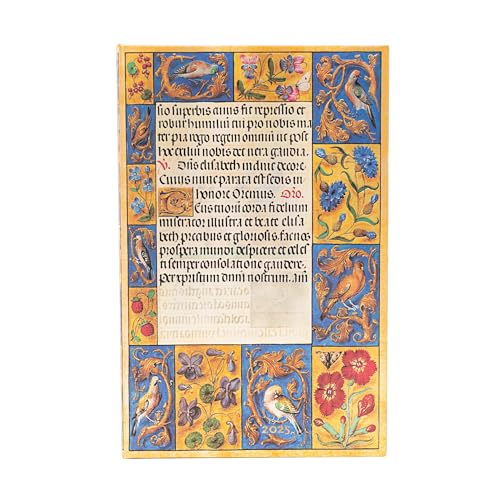 sio superbis cuius fit repressio et
robur humiliū tu pro nobis ma
ter pia rogo regem omniū ut post
hoc exiliū nobis det vera gaudia.
V. Dñs elisabeth induit decore.
Cuius nunc parata est sedis in
honore Oremus. Oro.
Deus tuorū corda fidelium
miserator illustra et beate elisa
beth precibus et gloriosis fac nos
prospera mundi despicere et celes
ti semper consolatione gaudere.
Per xpistum dnm nostrum. Am
2025